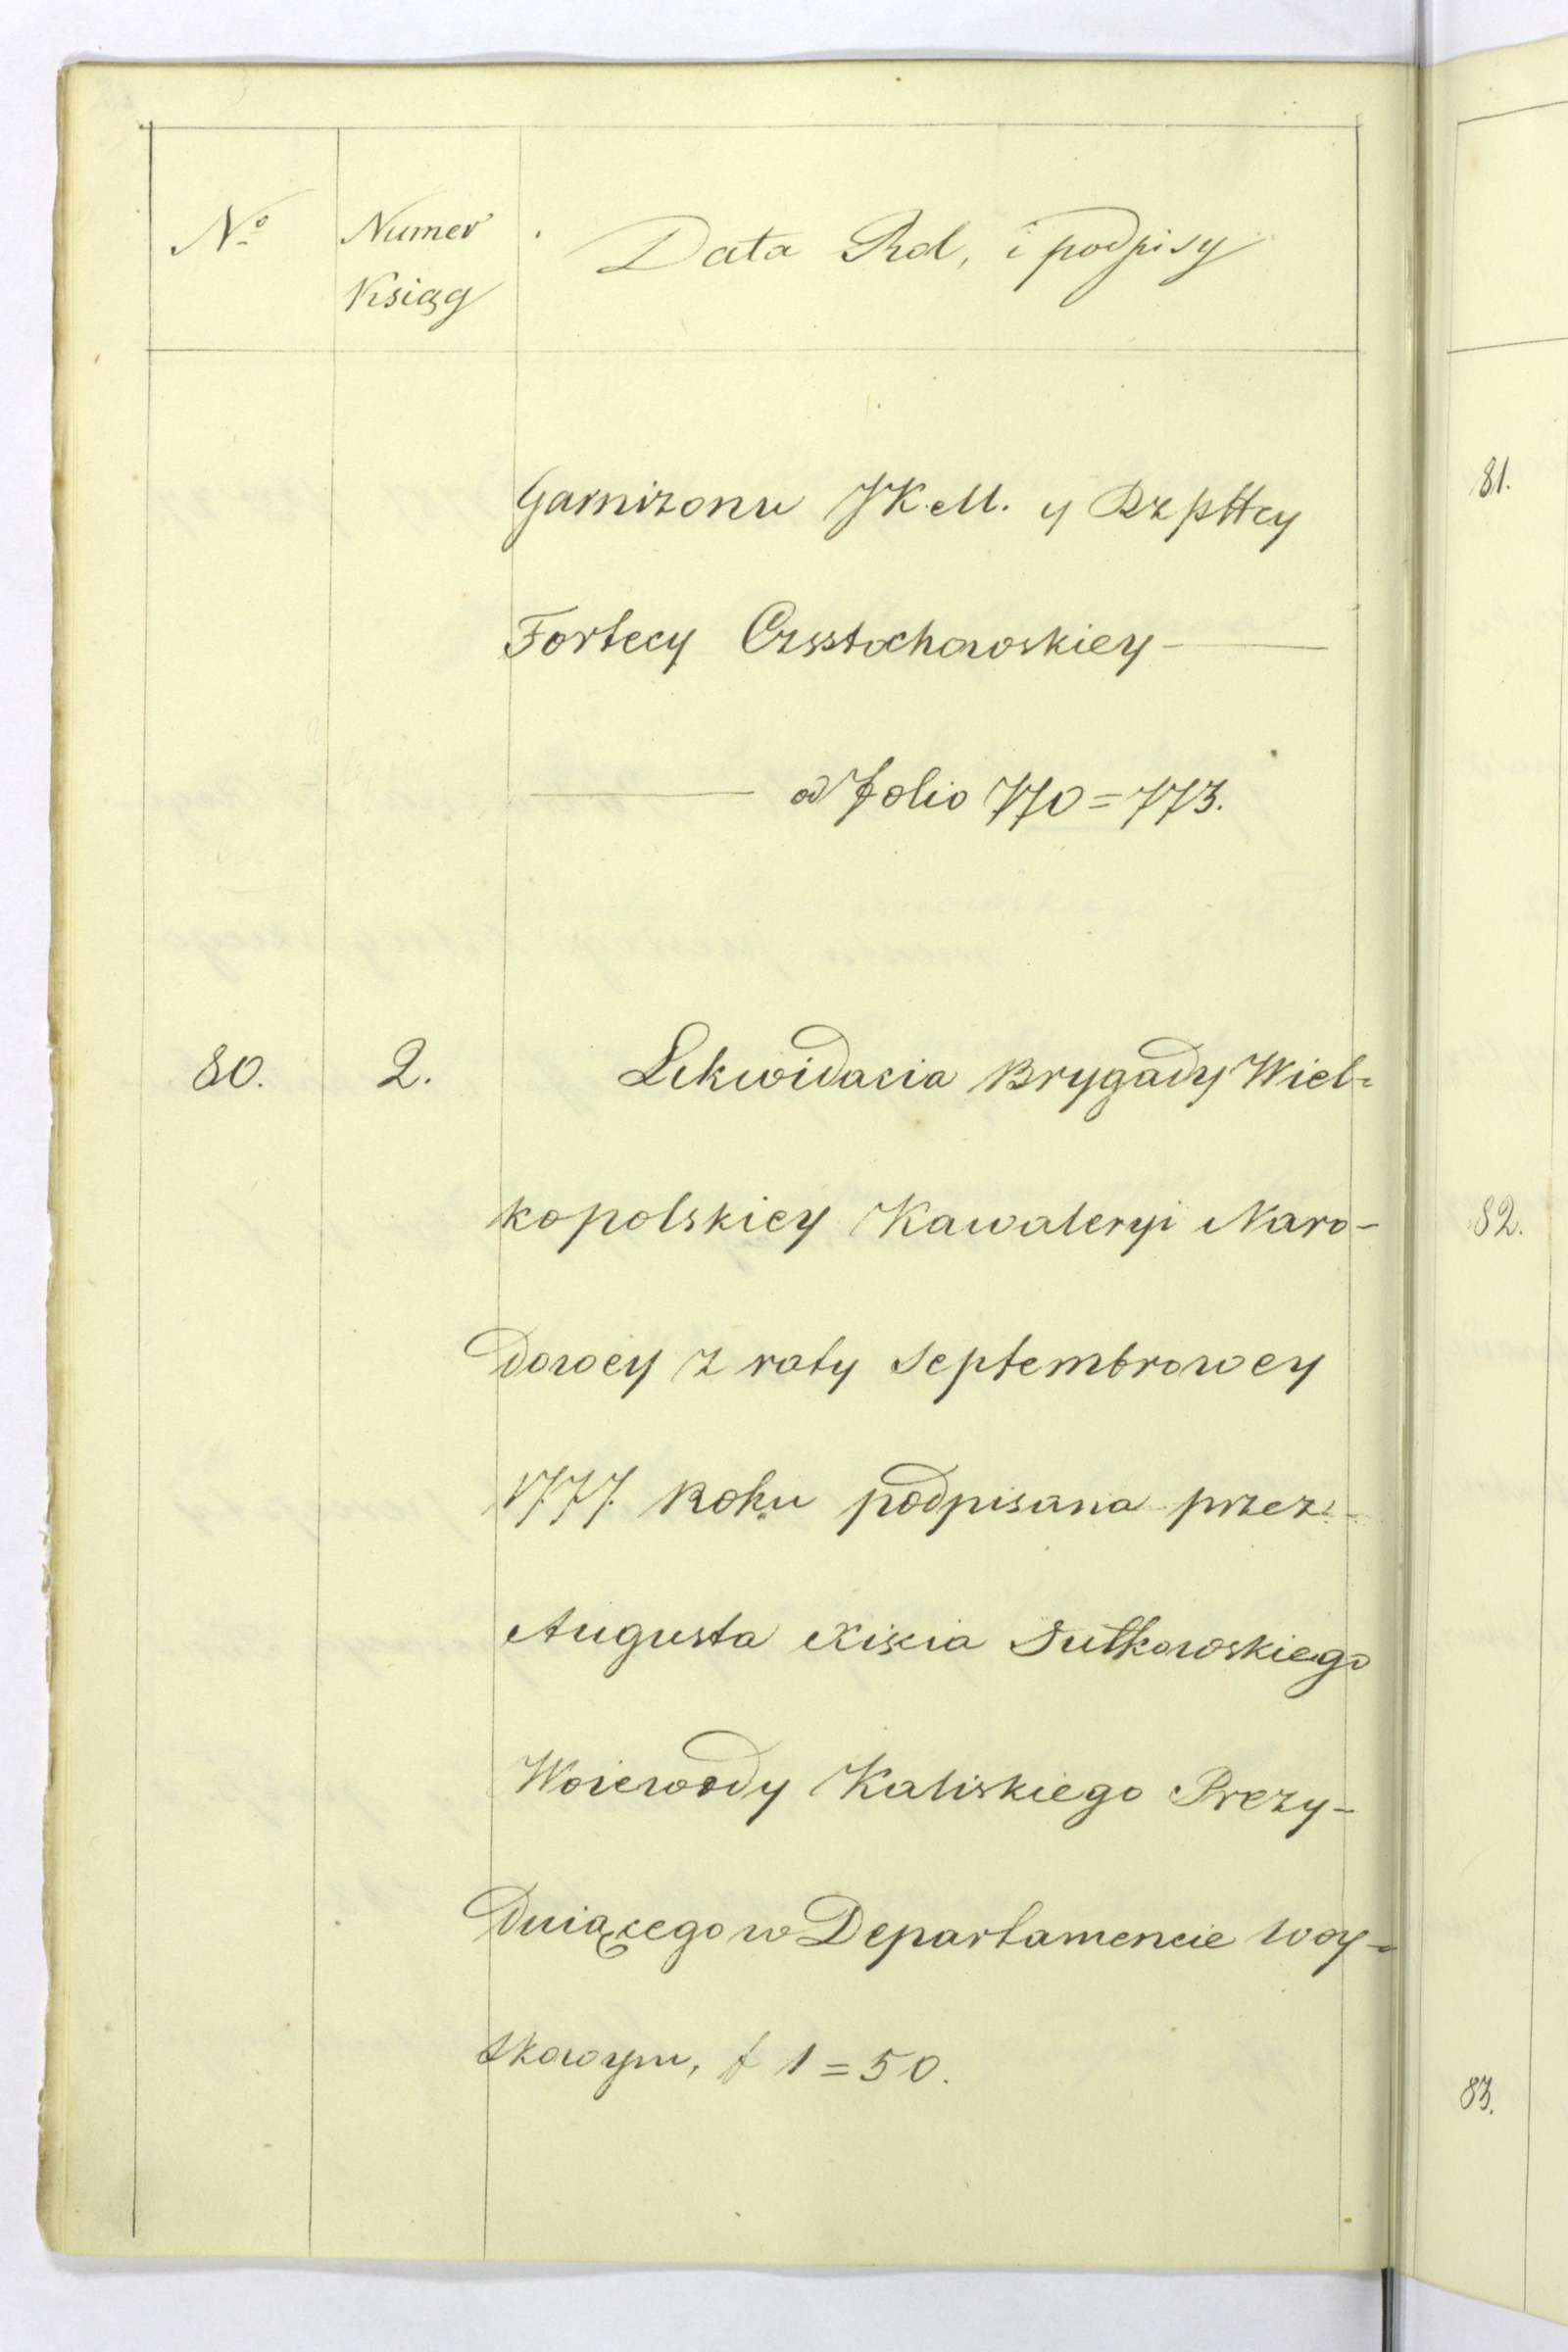 No Numer Data Rol, i podpisy
Ksiąg
Garnizonu JK.M. y Rzpttey
Fortecy Czsstochowskiey
od folio 770=773.
80. 2. Likwidacia Brygady Wiel=
kopolskiey Kawaleryi Naro-
dowey z raty Septembrowey
1777. Roku podpisana przez
Augusta Xiscia Sułkowskiego
Woiewody Kaliskiego Prezy-
duiącego w Departamencie Woy-
skowym, f 1=50.
81.
82.
83.